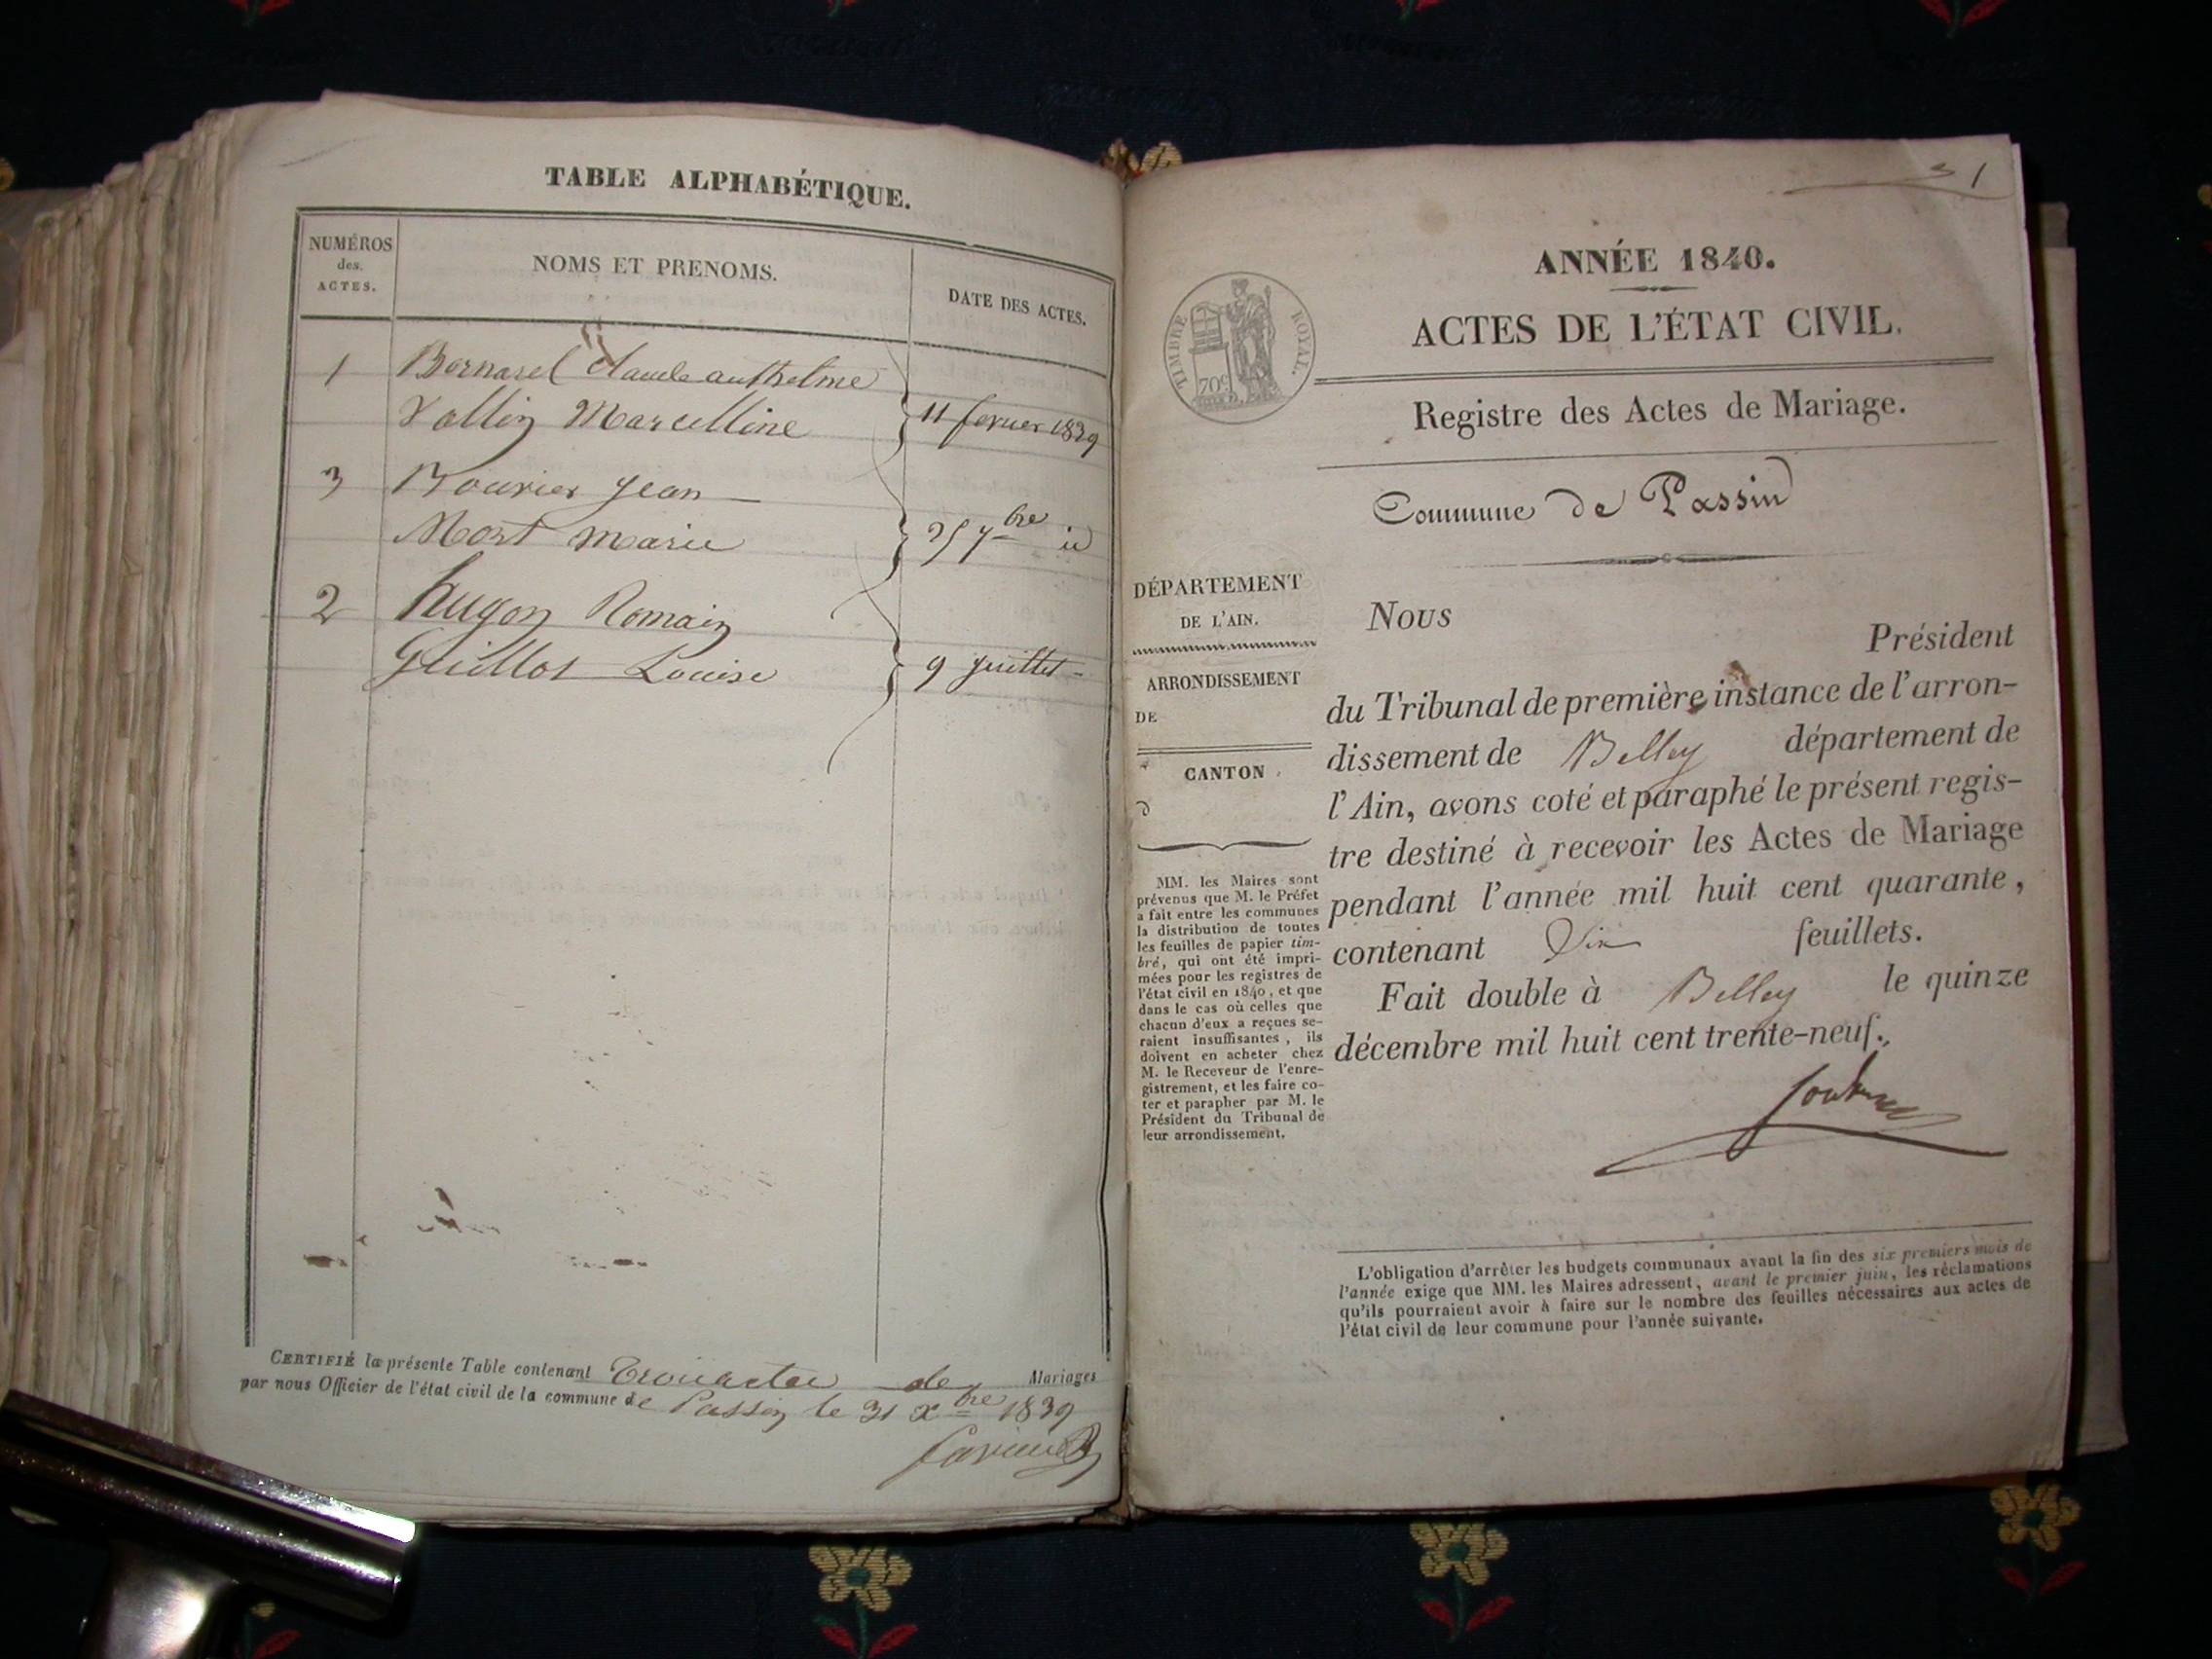 TABLE ALPHABÉTIQUE.
NUMÉROS
des
ACTES.
NOMS ET PRENOMS.
DATE DES ACTES.
1 Bernard Claude anthelme
Vallin Marcelline 11 fevrier 1839
3 Bouvier Jean
Mort Marie 25 7bre id
2 hugon Romain
Guillot Louise 9 Juillet
CERTIFIÉ la présente Table contenant Trois actes de Mariages
par nous Officier de l'état civil de la commune de Passin le 31 Xbre 1839
1
ANNÉE 1840.
ACTES DE L'ÉTAT CIVIL.
TIMBRE ROYAL.
70c
Registre des Actes de Mariage.
Commune de Passin
DÉPARTEMENT
DE L'AIN.
ARRONDISSEMENT
DE
CANTON
d
MM. les Maires sont
prévenus que M. le Préfet
a fait entre les communes
la distribution de toutes
les feuilles de papier tim-
bré, qui ont été impri-
mées pour les registres de
l'état civil en 1840, et que
dans le cas où celles que
chacun d'eux a reçues se-
raient insuffisantes, ils
doivent en acheter chez
M. le Receveur de l'enre-
gistrement, et les faire co-
ter et parapher par M. le
Président du Tribunal de
leur arrondissement.
Nous
Président
du Tribunal de première instance de l'arron-
dissement de Belley département de
l'Ain, avons coté et paraphé le présent regis-
tre destiné à recevoir les Actes de Mariage
pendant l'année mil huit cent quarante,
contenant Six feuillets.
Fait double à Belley le quinze
décembre mil huit cent trente-neuf.
L'obligation d'arrêter les budgets communaux avant la fin des six premiers mois de
l'année exige que MM. les Maires adressent, avant le premier juin, les réclamations
qu'ils pourraient avoir à faire sur le nombre des feuilles nécessaires aux actes de
l'état civil de leur commune pour l'année suivante.